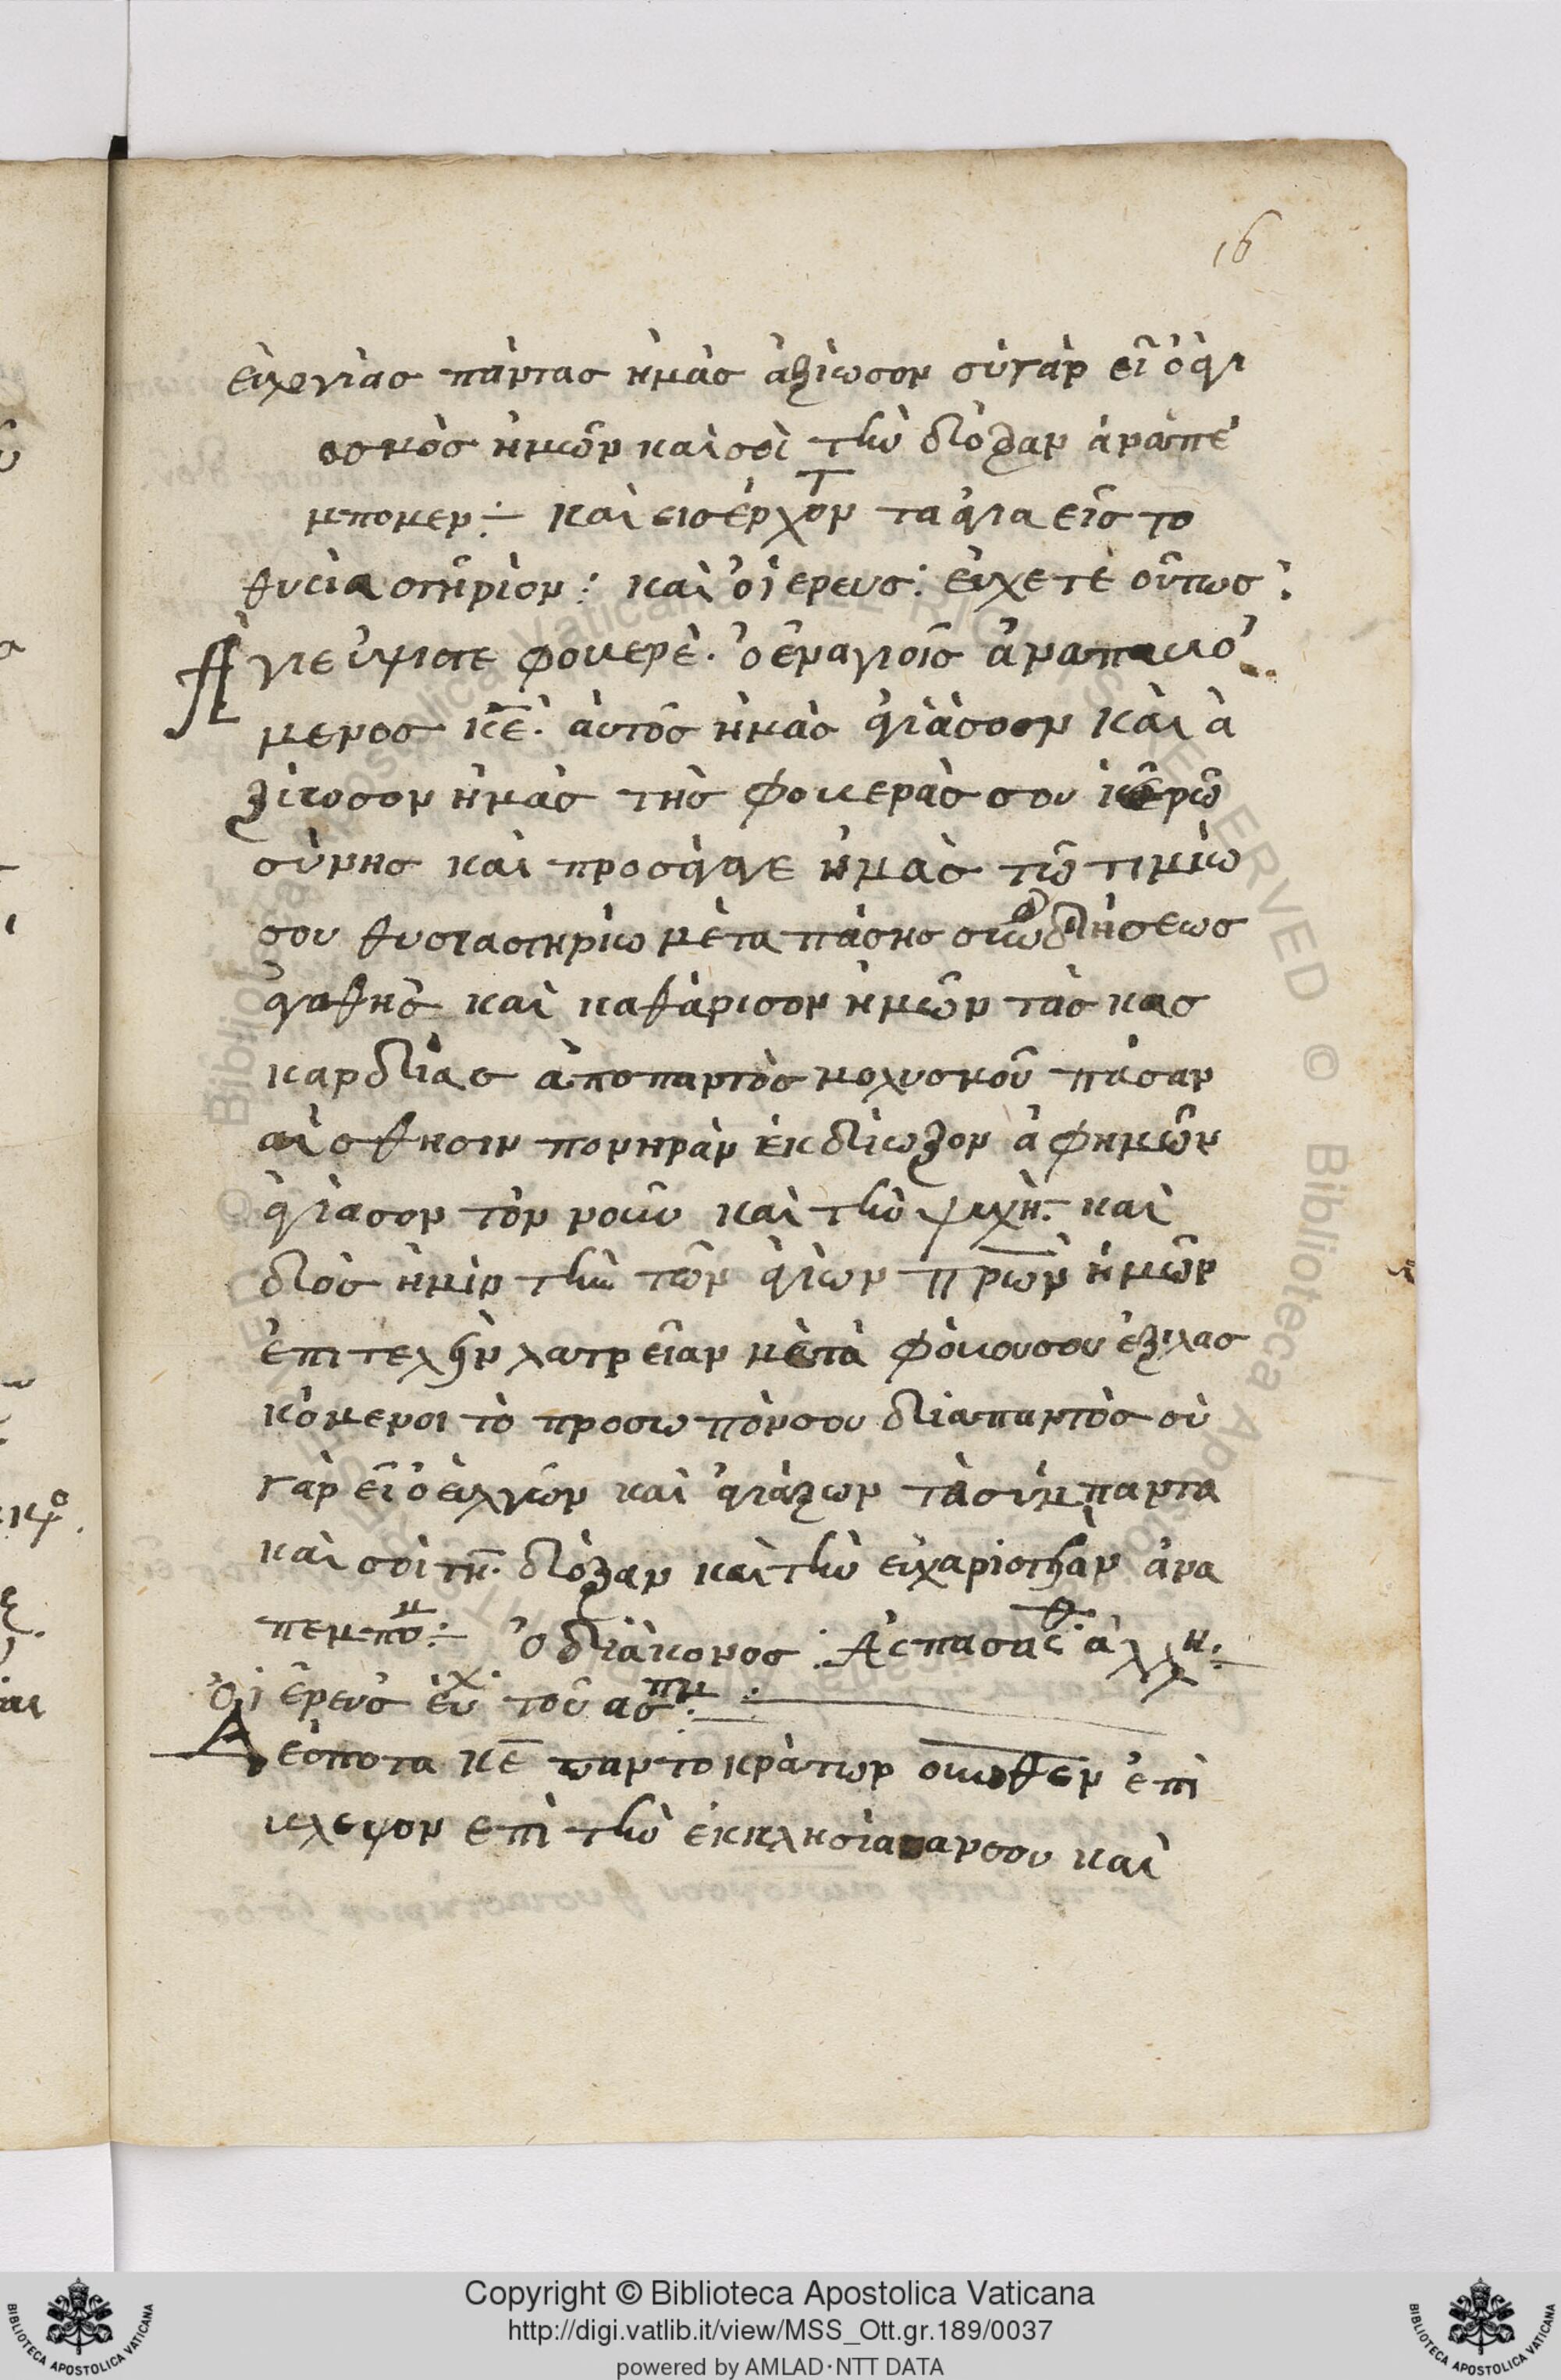 16
εὐλογίας πάντας ἡμὰς ἀξίωσον σὺ γὰρ εἶ ὁ ἁγι
ασμὸς ἡμῶν καὶ σοὶ τὴν δόξαν ἀναπέ
μπομεν :– καὶ εισέρχοντ τα ἅγια εἰς το
θυσιαστήριον : καὶ ὁ ἱερευς : εὔχετε οὕτως :
Ἅγιε ὕψιστε φοβερὲ· ὁ ἐν αγιοῖς ἀναπαυό
μενος κε̄· ἀυτὸς ἡμὰς ἁγιάσον καὶ ἀ
ξίωσον ἡμάς τῆς φοβερὰς σου ἱερω
σύνης καὶ προσάγαγε ἡμὰς τῷ τιμίω
σου θυσιαστηρίω μὲτα πάσης συνειδήσεως
ἀγαθῆς καὶ καθάρισον ἡμῶν τὰς κας
καρδίας ἀπο παντὸς μολυσμοῦ πάσαν
αἴσθησιν πονηρὰν ἐκδίωξον ἀφ ημῶν
ἁγίασον τὸν νοῦν καὶ τὴν ψυχὴ· καὶ
δὸς ἡμὶν τὴν τῶν ἁγίων πρων ἡμῶν
ἐπιτελεῖν λατρεῖαν μὲτὰ φόβου σου ἐξιλας
κόμενοι τὸ προσωπόν σου διαπαντὸς σὺ
γὰρ εἶ ὁ ευλογῶν καὶ ἁγιάζων τὰ σύμπαντα
καὶ σοὶ τη· δόξαν καὶ τὴν εὐχαριστείαν ἀνα
πεμπομ :– ὁ διάκονος : Ἀσπασασθ· ἀλλη :–
Ὁ ἱ ἐρευς ἐυχ· τοῦ ασπμ :–
Δέσποτα κε̄ παντοκράτωρ ουνοθεν ἐπὶ
βλεψον επὶ τὴν ἐκκλησίαν σου καὶ
Copyright © Biblioteca Apostolica Vaticana
http://digi.vatlib.it/view/MSS_Ott.gr.189/0037
powered by AMLAD·NTT DATA